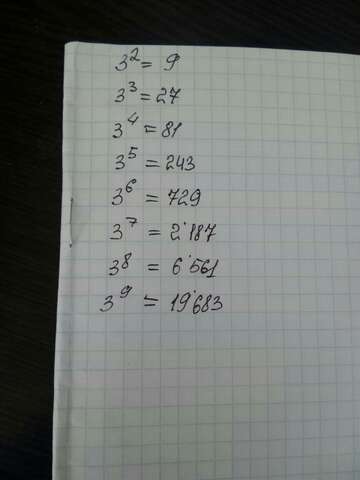 3² = 9
3³ = 27
3⁴ = 81
3⁵ = 243
3⁶ = 729
3⁷ = 2'187
3⁸ = 6'561
3⁹ = 19'683